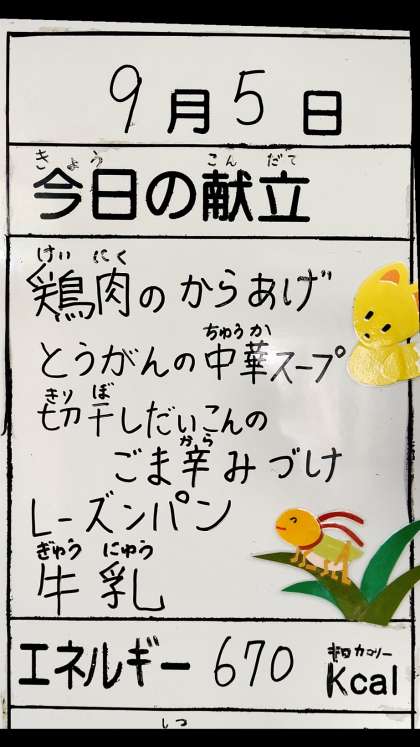 9月5日
きょう こんだて
今日の献立
けい にく
鶏肉のからあげ
ちゅうか
とうがんの中華スープ
きり ぼ
切干しだいこんの
から
ごま辛みづけ
レーズンパン
ぎゅう にゅう
牛乳
エネルギー 670 Kcal
キロカロリー
しつ